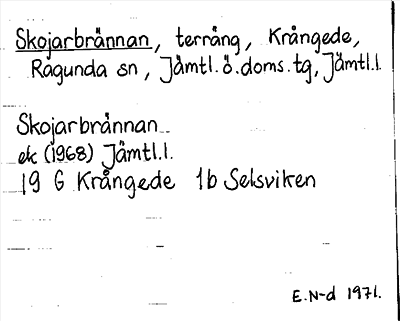 Skojarbrännan, terräng, Krångede,
Ragunda sn, Jämtl.ö.doms.tg, Jämtl.l.
Skojarbrännan
ek (1968) Jämtl.l.
19 G Krångede 1b Selsviken
E.N-d 1971.